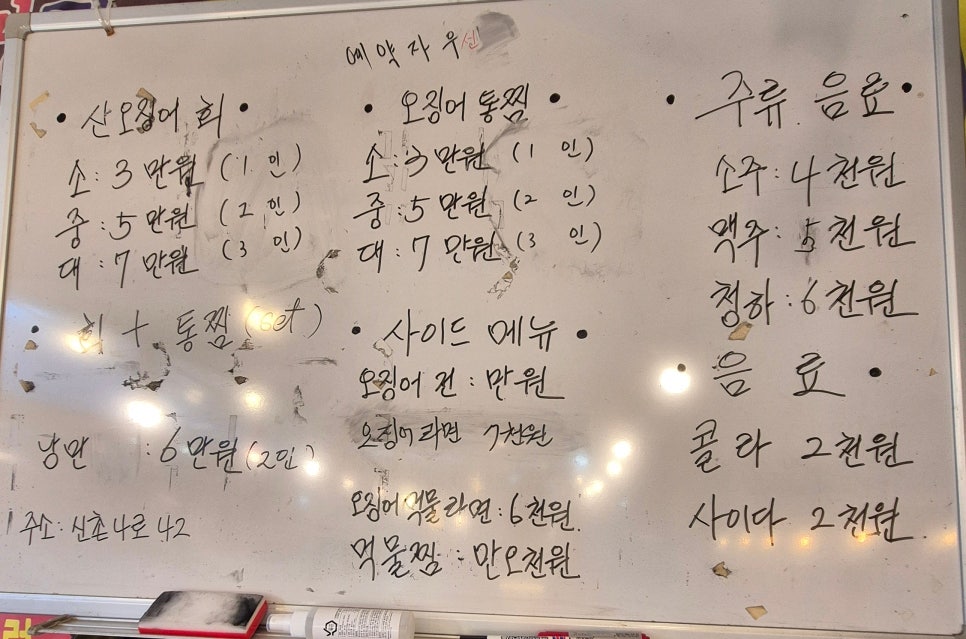 예약자 우선
• 산오징어 회 •
소 : 3 만원 (1 인)
중 : 5 만원 (2 인)
대 : 7 만원 (3 인)
• 회 + 통찜 (set) •
낭만 : 6만원 (2인)
주소 : 신촌4로 42
• 오징어 통찜 •
소 : 3 만원 (1 인)
중 : 5 만원 (2 인)
대 : 7 만원 (3 인)
• 사이드 메뉴 •
오징어 전 : 만원
오징어라면 7천원
오징어 먹물라면 : 6천원
먹물찜 : 만오천원
• 주류 음료 •
소주 : 4 천원
맥주 : 5 천원
청하 : 6 천원
• 음 료 •
콜 라 2천원
사이다 2천원